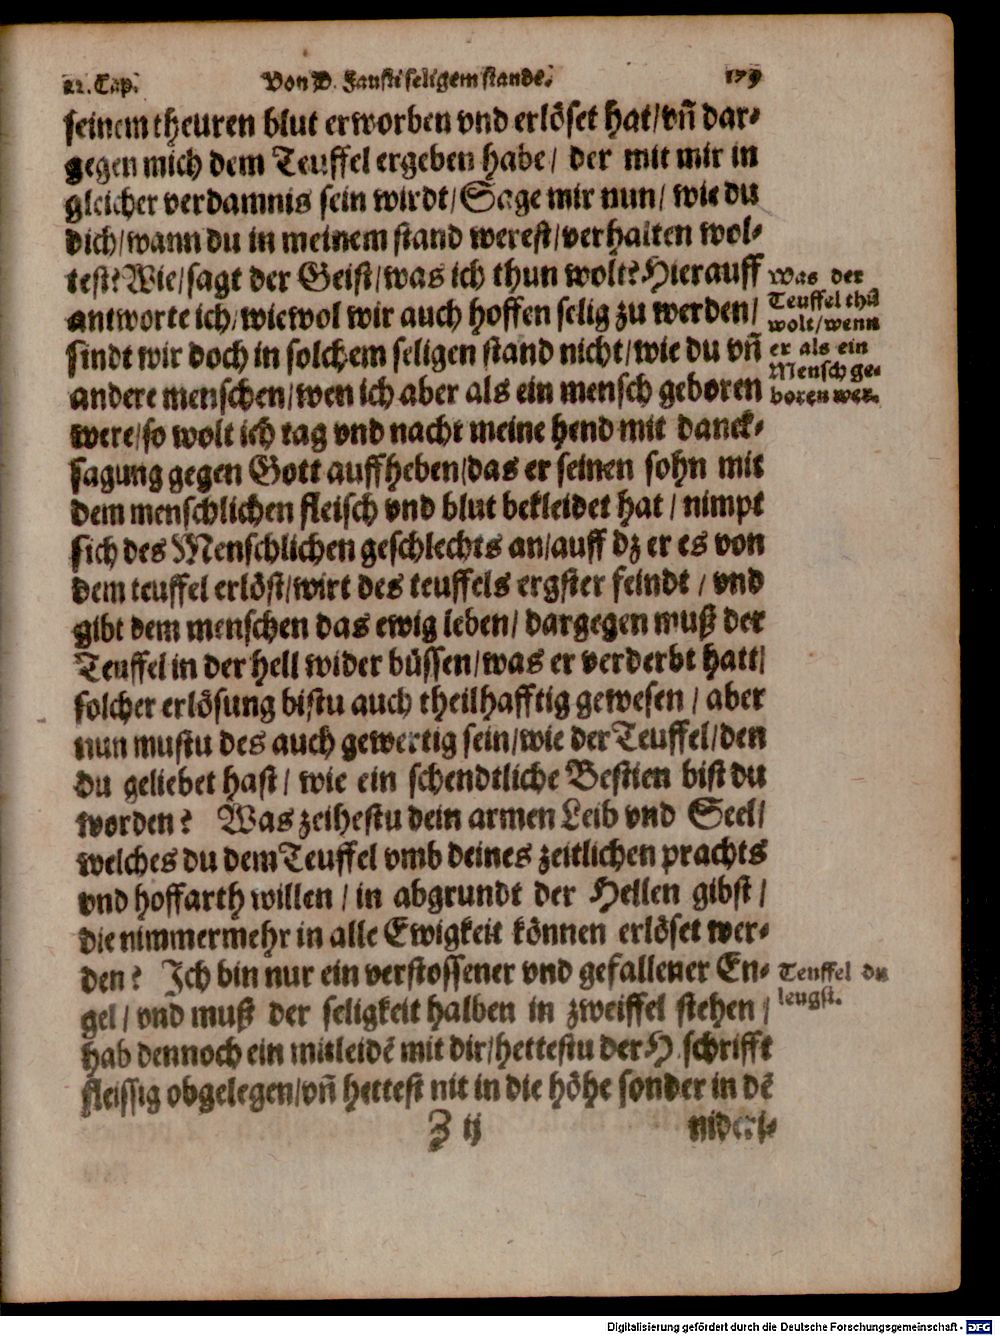 22. Cap. Von D. Fausti seligem stande. 179
seinem theuren blut erworben vnd erlöset hat/vñ dar-
gegen mich dem Teuffel ergeben habe/ der mit mir in
gleicher verdamnis sein wirdt/Sage mir nun/ wie du
dich/wann du in meinem stand werest/verhalten wol-
test? Wie/sagt der Geist/was ich thun wolt? Hierauff
antworte ich/wiewol wir auch hoffen selig zu werden/
sindt wir doch in solchem seligen stand nicht/wie du vñ
andere menschen/wen ich aber als ein mensch geboren
were/so wolt ich tag vnd nacht meine hend mit danck-
sagung gegen Gott auffheben/das er seinen sohn mit
dem menschlichen fleisch vnd blut bekleidet hat / nimpt
sich des Menschlichen geschlechts an/auff dz er es von
dem teuffel erlöst/wirt des teuffels ergster feindt / vnd
gibt dem menschen das ewig leben/ dargegen muß der
Teuffel in der hell wider büssen/was er verderbt hatt/
solcher erlösung bistu auch theilhafftig gewesen / aber
nun mustu des auch gewertig sein/wie der Teuffel/den
du geliebet hast/ wie ein schendtliche Bestien bist du
worden? Was zeihestu dein armen Leib vnd Seel/
welches du dem Teuffel vmb deines zeitlichen prachts
vnd hoffarth willen / in abgrundt der Hellen gibst /
die nimmermehr in alle Ewigkeit können erlöset wer-
den? Ich bin nur ein verstossener vnd gefallener En-
gel / vnd muß der seligkeit halben in zweiffel stehen /
hab dennoch ein mitleidẽ mit dir/hettestu der H. schrifft
fleissig obgelegen/vñ hettest nit in die höhe sonder in dẽ
Z ij nideri-
Was der
Teuffel thũ
wolt/wenn
er als ein
Mensch ge-
boren wer.
Teuffel du
leugst.
Digitalisierung gefördert durch die Deutsche Forschungsgemeinschaft - DFG